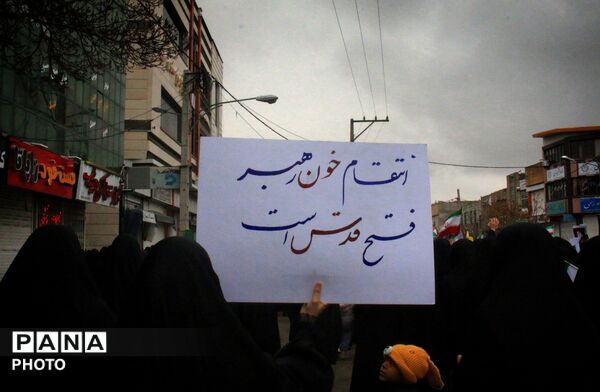 انتقام خون رهبر
فتح قدس است
PANA
PHOTO
PANA
PHOTO